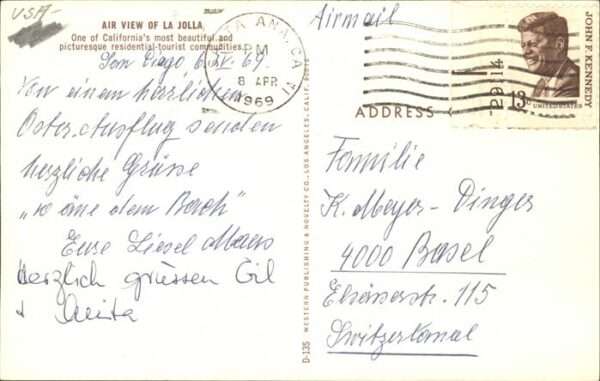 USA-
AIR VIEW OF LA JOLLA
One of California's most beautiful and
picturesque residential-tourist communities.
San Diego 6. IV. 69.
Von einem herrlichen
Oster-Ausflug senden
herzliche Grüsse
dem Bach"
Eure Liesel
Herzlich grüssen Gil
+ Anita
SANTA ANA, CA
PM
8 APR
1969
Airmail
JOHN F. KENNEDY
13c
UNITED STATES
29114
ADDRESS
Familie
K. Meyer-Dinger
4000 Basel
115
Switzerland
D-135 WESTERN PUBLISHING & NOVELTY CO.-LOS ANGELES, CALIF.